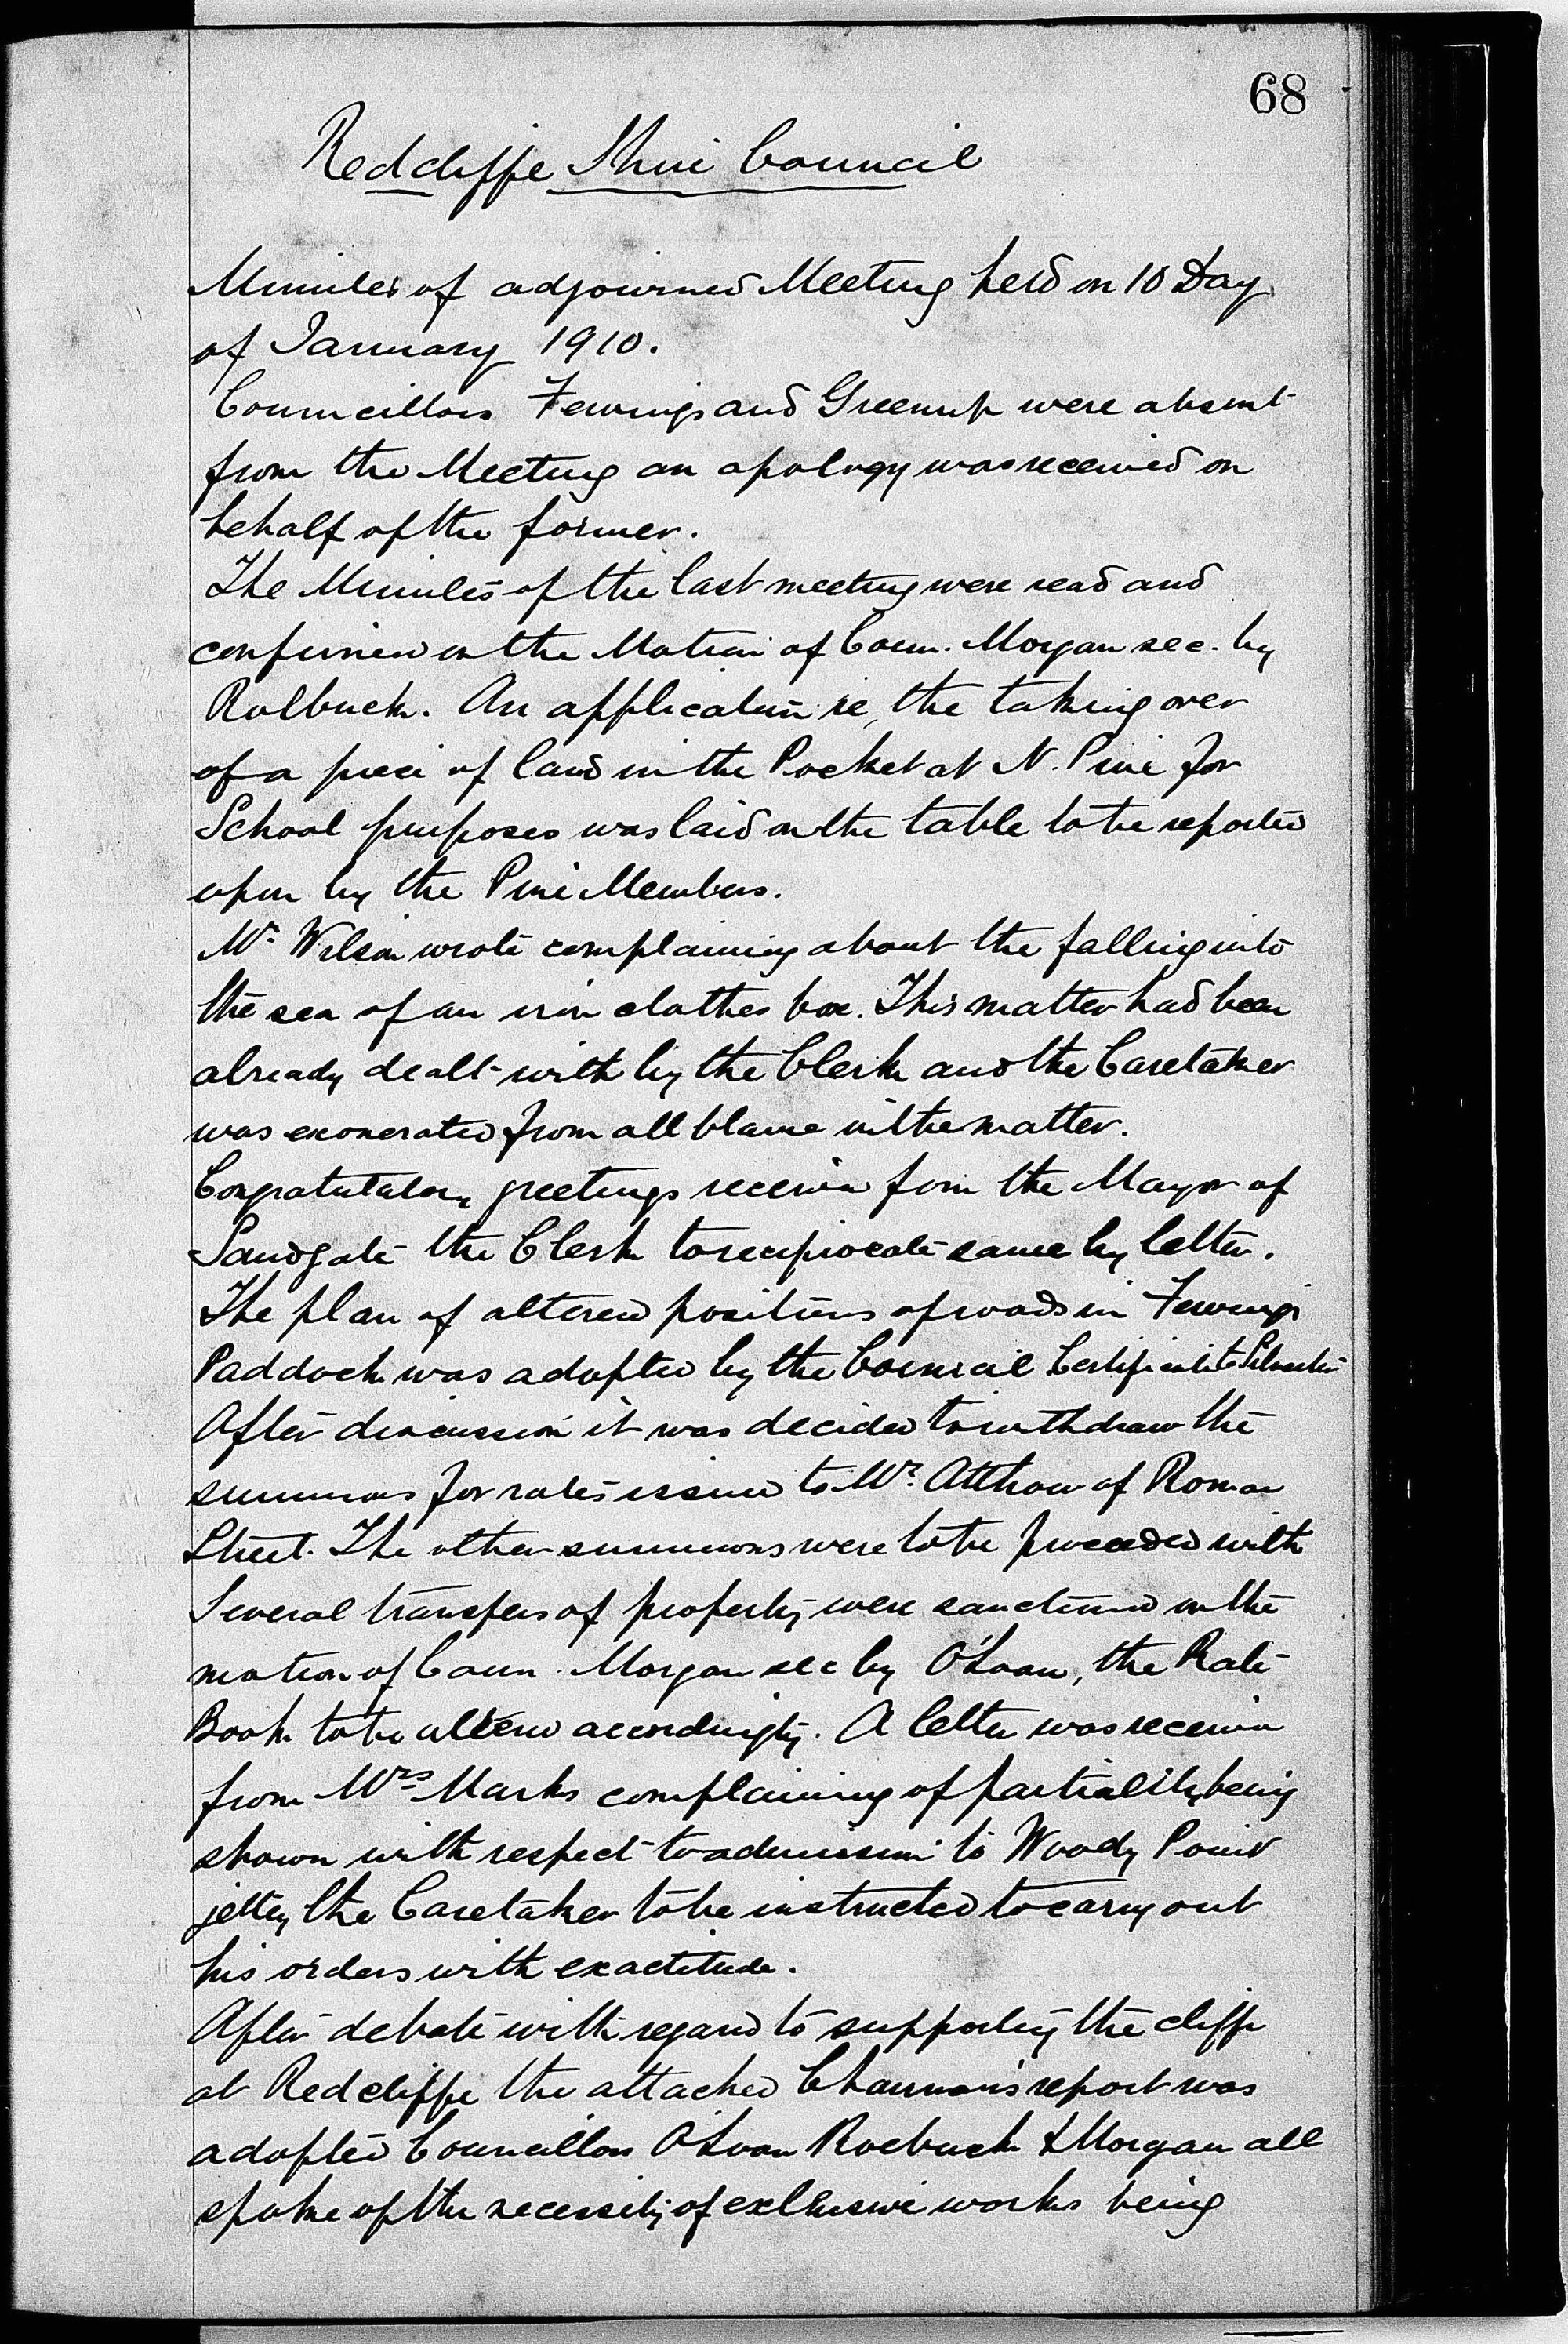 68
Redcliffe Shire Council
Minutes of adjourned Meeting held on 10 Day
of January 1910.
Councillors Fewings and Greenup were absent
from the Meeting an apology was received on
behalf of the former.
The Minutes of the last meeting were read and
confirmed on the Motion of Coun. Morgan sec. by
Roebuck. An application re, the taking over
of a piece of land in the Pocket at N. Pine for
School purposes was laid on the table to be reported
upon by the Pine Members.
Mr. Wilson wrote complaining about the falling into
the sea of an iron clothes box. This matter had been
already dealt with by the Clerk and the Caretaker
was exonerated from all blame in the matter.
Congratulatory greetings received from the Mayor of
Sandgate the Clerk to reciprocate same by letter.
The plan of altered positions of roads in Fewings
Paddock was adopted by the Council Certificate to
After discussion it was decided to withdraw the
summons for rates issued to Mr. Atthow of Roma
Street. The other summons were to be proceeded with
Several transfers of property were sanctioned on the
motion of Coun. Morgan sec by O'Loan, the Rate
Book to be altered accordingly. A letter was received
from Mrs Marks complaining of partiality being
shown with respect to admission to Woody Point
jetty, the Caretaker to be instructed to carry out
his orders with exactitude.
After debate with regard to supporting the cliffs
at Redcliffe the attached Chairman's report was
adopted Councillors O'Loan Roebuck & Morgan all
spoke of the necessity of exclusive works being